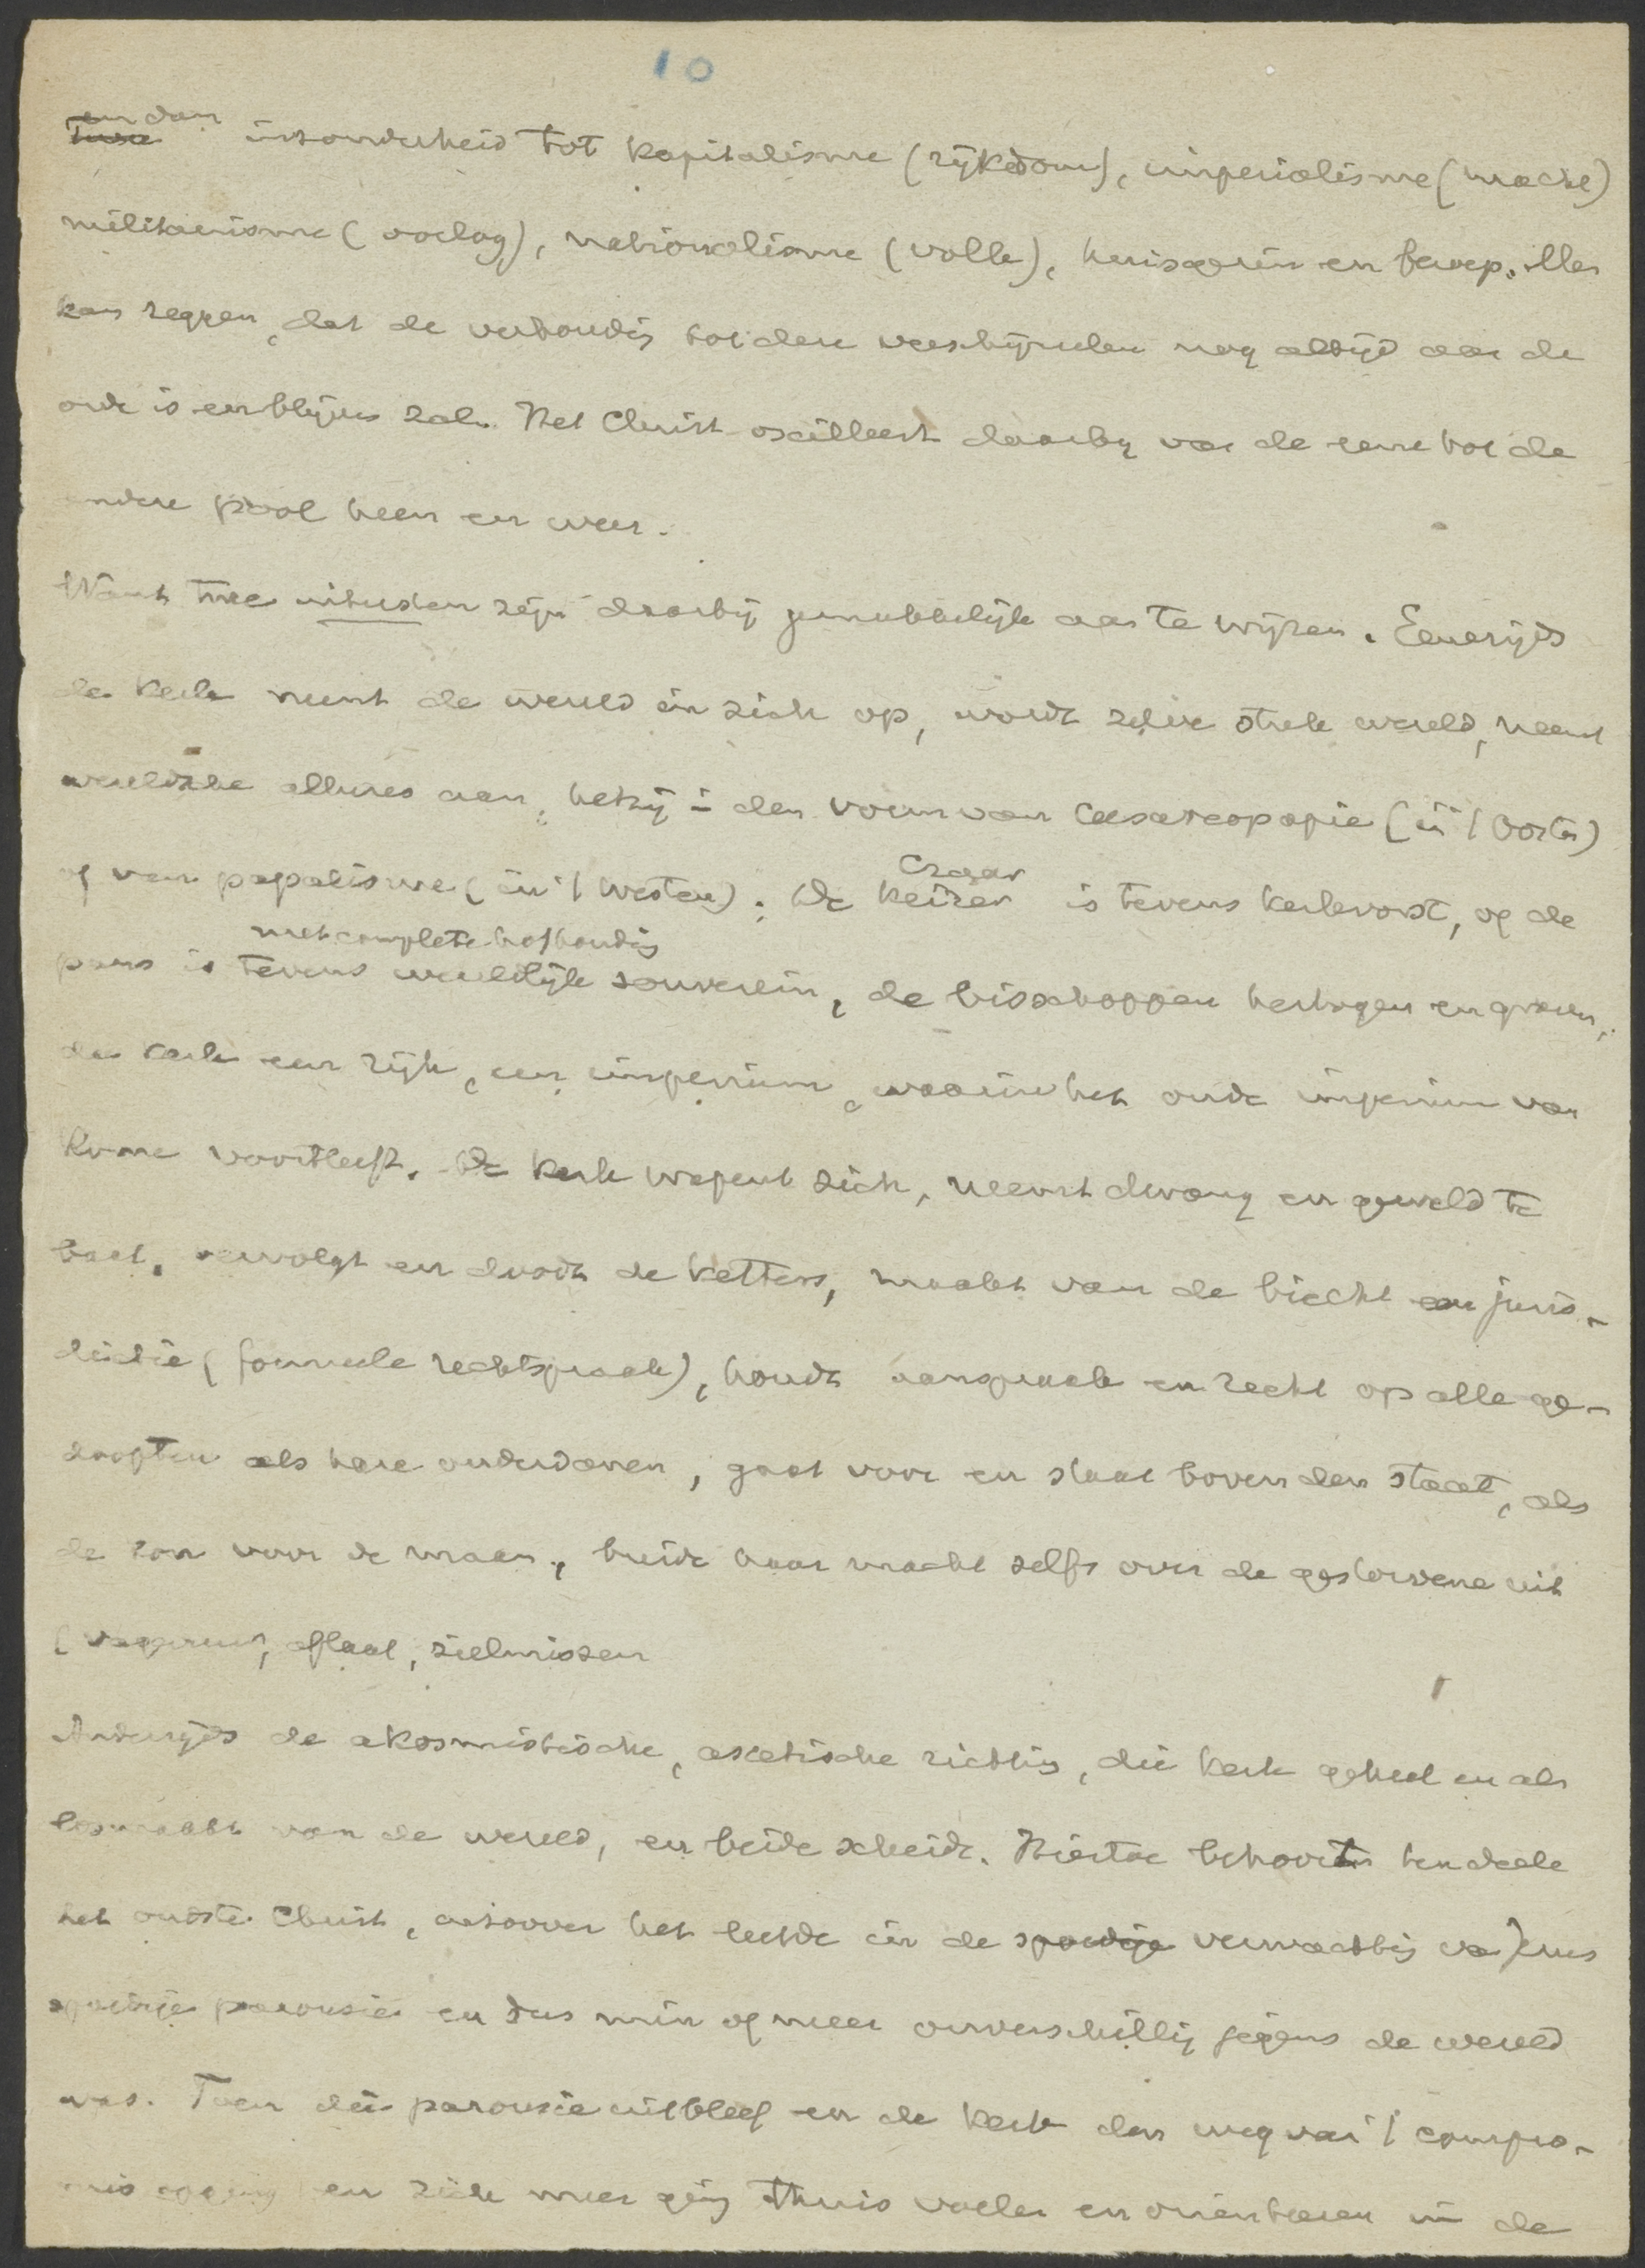 10
en dan
insonderheid tot kapitalisme (rijkdom), imperialisme (macht)
militarisme (oorlog), nationalisme (volk), huisgezin en beroep. Men
kan zeggen, dat de verhoudig tot deze verschijnselen nog altijd aan de
orde is en blijven zal. Het Christ. oscilleert daarbij van de eene tot de
andere pool heen en weer.
Want twee uitersten zijn daarbij gemakkelijk aan te wijzen. Eenerzijds
de kerk neemt de wereld in zich op, wordt zelve stuk wereld, neemt
wereldsche allures aan, hetzij in den vorm van Caesareopapie (in 't Oosten)
of van papalisme (in 't Westen). De keizer is tevens kerkvorst, of de
Czaar
met complete hofhoudig
paus is tevens wereldlijk souverein, de bisschoppen hertogen en graven,
de kerk een rijk, een imperium, waarin het oude imperium van
Rome voortleeft. De kerk wapent zich, neemt dwang en geweld te
baat, vervolgt en doodt de ketters, maakt van de biecht een juris-
dictie (formeele rechtspraak), houdt aanspraak en recht op alle ge-
doopten als hare onderdanen, gaat voor en staat boven den staat, als
de zon voor de maan, breidt haar macht zelfs over de gestorvene uit
(vagevuur, aflaat, zielmissen
Anderzijds de akosmistische, ascetische richting, die kerk geheel en al
losmaakt van de wereld, en beide scheidt. Hiertoe behoort ten deele
het oudste Christ., inzoover het leefde in de spoedige verwachting van Jezus
spoedige parousie en dus min of meer onverschillig jegens de wereld
was. Toen die parousie uitbleef en de kerk den weg van 't compro-
mis opging en zich meer ging thuis voelen en orienteeren in de